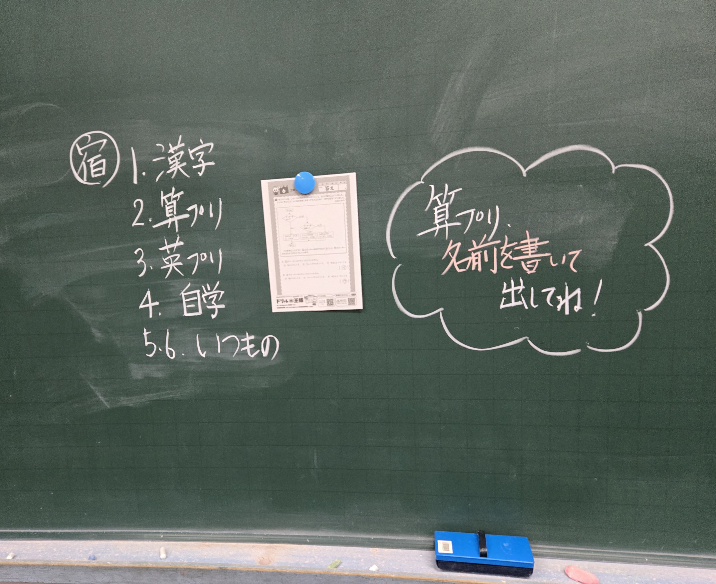 宿
1. 漢字
2. 算プリ
3. 英プリ
4. 自学
5.6. いつもの
算プリ、
名前を書いて
出してね！
ドリルの王様